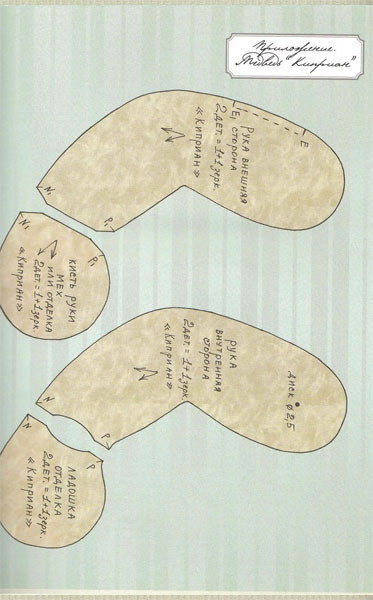 Приложение.
Медведь "Киприан"
E
E₁
РУКА ВНЕШНЯЯ
СТОРОНА
2 ДЕТ. = 1+1 ЗЕРК.
«КИПРИАН»
N₁
P₁
N₁
P₁
КИСТЬ РУКИ
МЕХ
ИЛИ ОТДЕЛКА
2 ДЕТ. = 1+1 ЗЕРК.
«КИПРИАН»
ДИСК Ø 2,5
РУКА
ВНУТРЕННЯЯ
СТОРОНА
2 ДЕТ. = 1+1 ЗЕРК.
«КИПРИАН»
N
P
N
P
ЛАДОШКА
ОТДЕЛКА
2 ДЕТ. = 1+1 ЗЕРК.
«КИПРИАН»